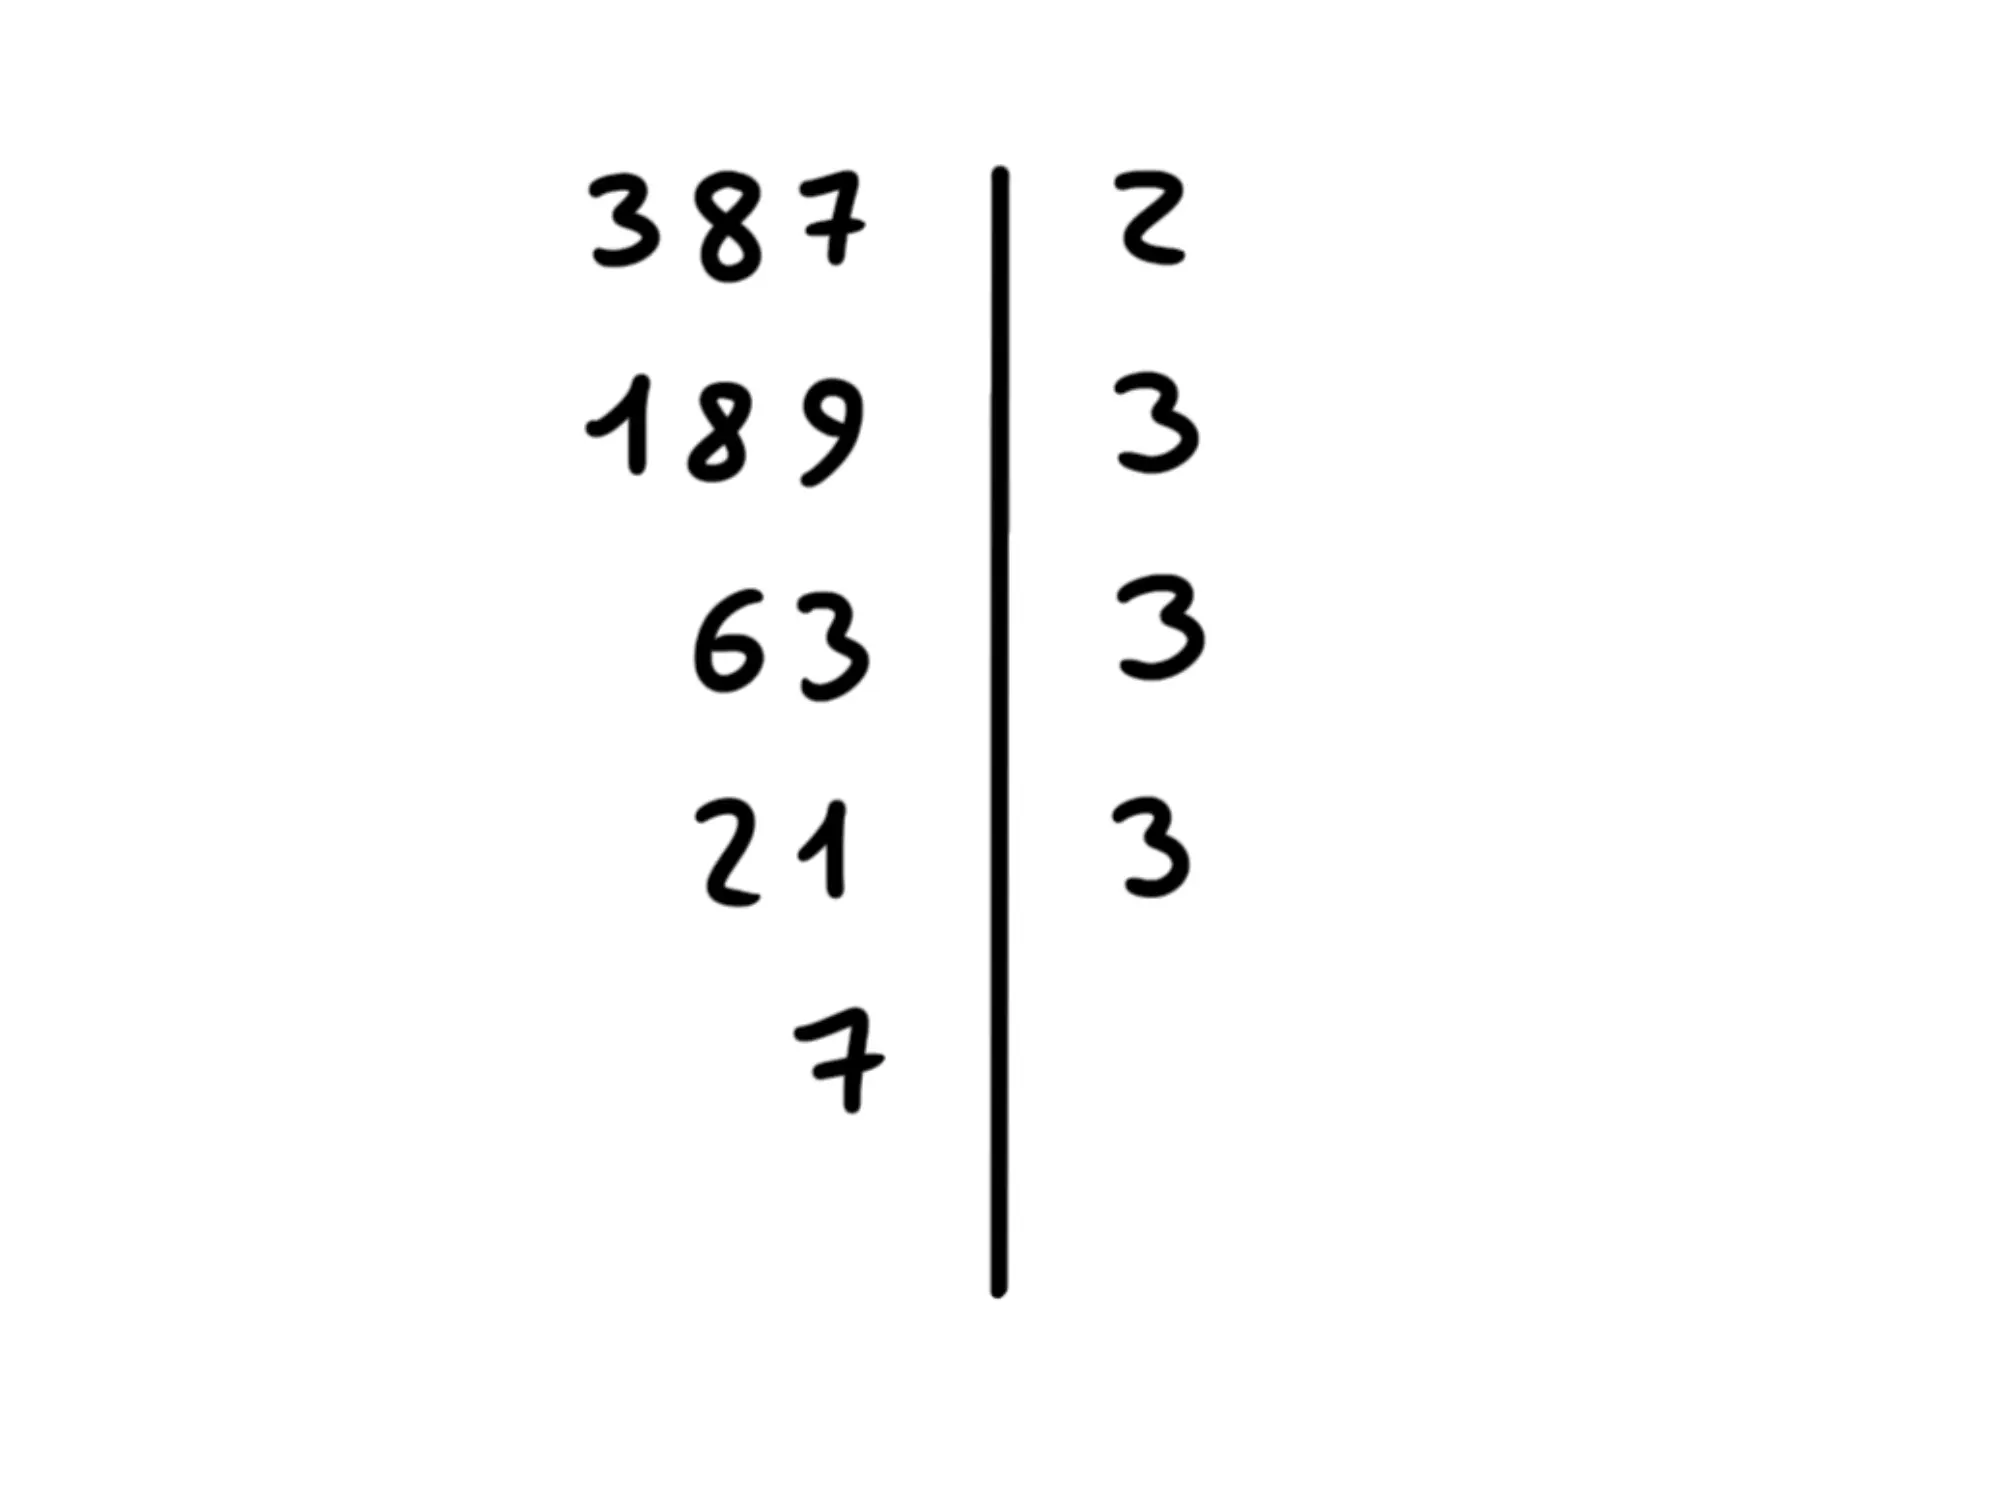 387 | 2
189 | 3
63 | 3
21 | 3
7 |